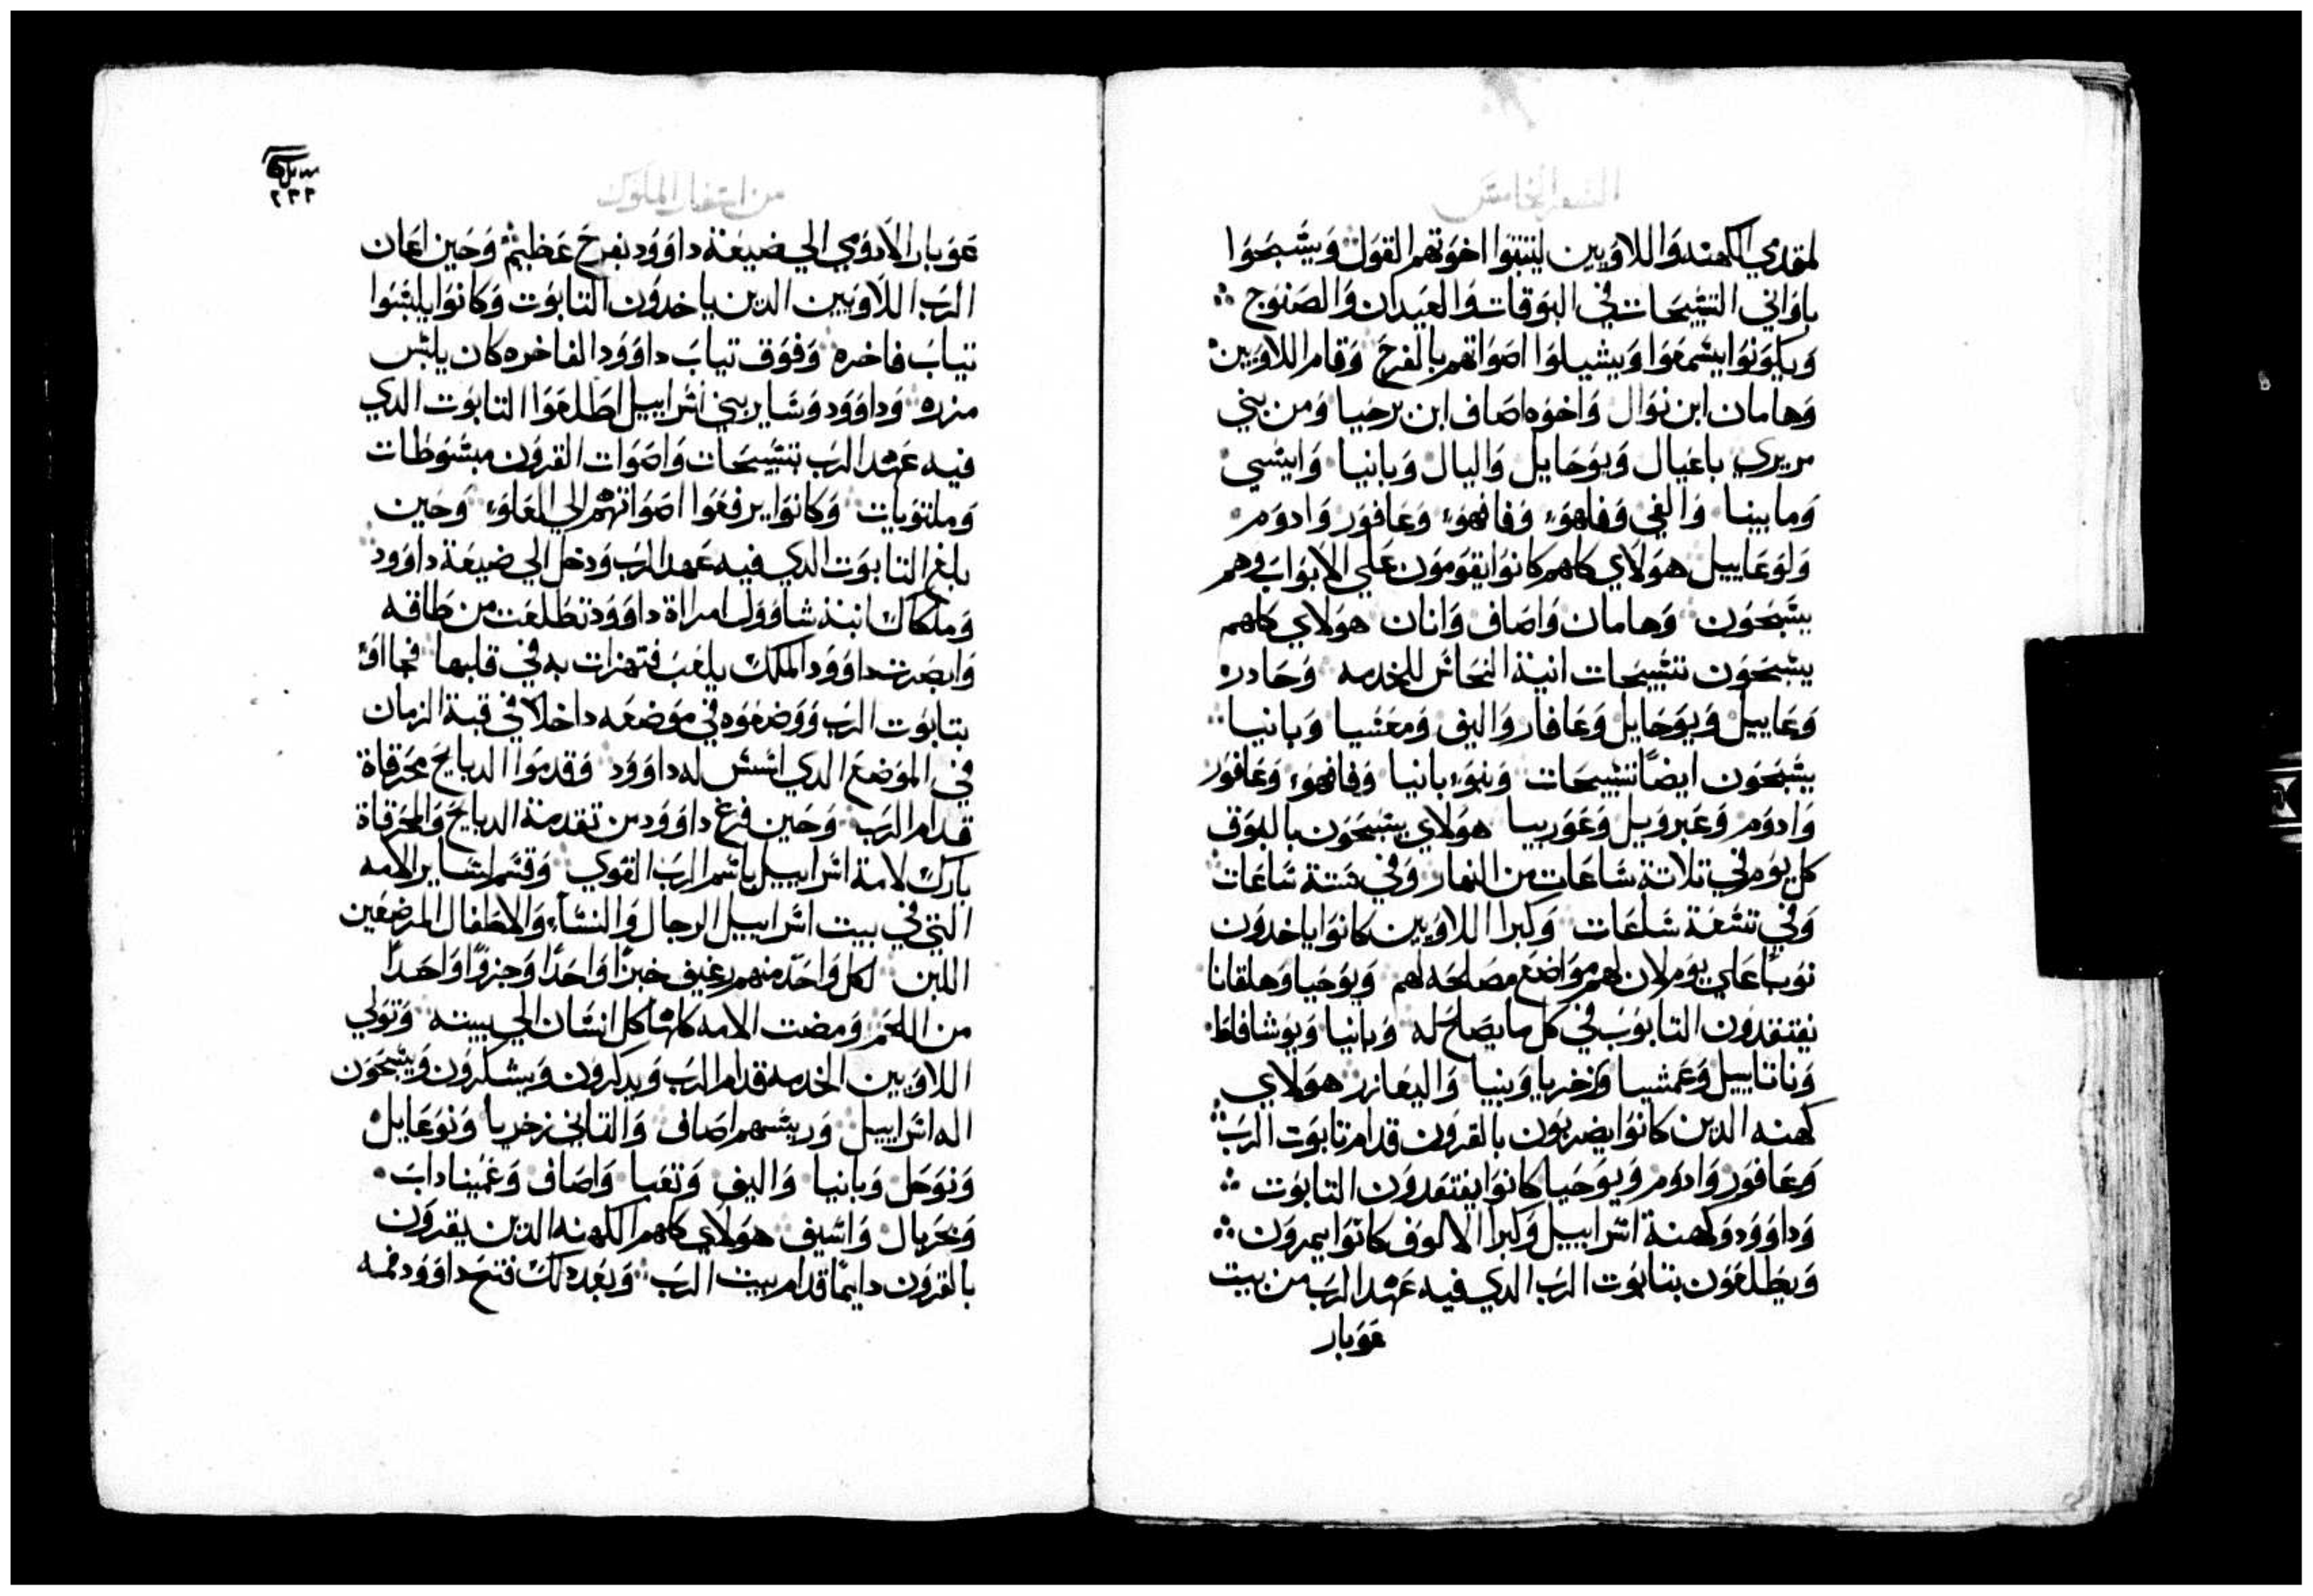 السفر الخامس
لمقدمي الكهنه واللاويين ليثبتوا اخوتهم القول ويسبحوا
باواني التسبيحات في البوقات والعيدان والصنوج
ويكونوا يسمعوا ويشيلوا اصواتهم بالفرح وقام اللاويين
وهامان ابن نوال واخوه اصاف ابن برخيا ومن بني
مريري باعيال ويوحايل واليال وبانيا وايشي
وماسينا والفي وفاهو وفافهو وعافور وادوم
ولوعاييل هولاي كلهم كانوا يقومون علي الابواب وهم
يسبحون وهامان واصاف واتان هولاي كلهم
يسبحون تسبيحات انية النحاس للخدمه وحادره
وعاييل ويوحايل وعافار واليف ومعسيا وبانيا
يسبحون ايضاً تسبيحات وبنو بانيا وفافهو وعافور
وادوم وعبرويل وعوربيا هولاي يسبحون بالبوق
كل يوم في تلاتة ساعات من النهار وفي ستة ساعات
وفي تسعة ساعات وكبرا اللاويين كانوا ياخدون
نوباً علي يوم لان لهم مواضع مصلحه لهم ويوحيا وهلقانا
يفتقدون التابوت في كل ما يصلح له وبانيا ويوشافاط
وناتاييل وعمشيا وزخريا وبنيا واليعازر هولاي
كهنه الدين كانوا يضربون بالقرون قدام تابوت الرب
وعافور وادوم ويوحيا كانوا يفتقدون التابوت
وداوود وكهنة اسراييل وكبرا الالوف كانوا يمرون
ويطلعون بتابوت الرب الدي فيه عهد الرب من بيت
عوبار
من اسفار الملوك
٢٣٢
عوبار الادومي الي ضيعة داوود بفرح عظيم وحين اعان
الرب اللاويين الدين ياخدون التابوت وكانوا يلبسوا
تياب فاخره وفوق تياب داوود الفاخره كان يلبس
مزره وداوود وساير بني اسراييل اطلعوا التابوت الدي
فيه عهد الرب بتسبيحات واصوات القرون مبسوطات
وملتويات وكانوا يرفعوا اصواتهم الي العلو وحين
بلغ التابوت الدي فيه عهد الرب ودخل الي ضيعة داوود
وملكال ابنة شاوول امراة داوود تطلعت من طاقه
وابصرت داوود الملك يلعب فتهزات به في قلبها فجااو
بتابوت الرب ووضعوه في موضعه داخلا في قبة الزمان
في الموضع الدي اسس له داوود وقدموا الدبايح محرقاة
قدام الرب وحين فرغ داوود من تقدمة الدبايح والمحرقاة
بارك لامة اسراييل باسم الرب القوي وقسم لساير الامه
التي في بيت اسراييل الرجال والنساء والاطفال المرضعين
اللبن لكل واحد منهم رغيف خبزاً واحداً وجزواً واحداً
من اللحم ومضت الامه كلها كل انسان الي بيته وتولي
اللاويين الخدمه قدام الرب ويدكرون ويشكرون ويسبحون
اله اسراييل وريسهم اصاف والتاني زخريا ونوعايل
ونوحل وبانيا واليف وتعيا واصاف وعميناداب
وبحريال واسيف هولاي كلهم الكهنه الدين يقرون
بالقرون دايماً قدام بيت الرب وبعد دلك فتح داوود فمه